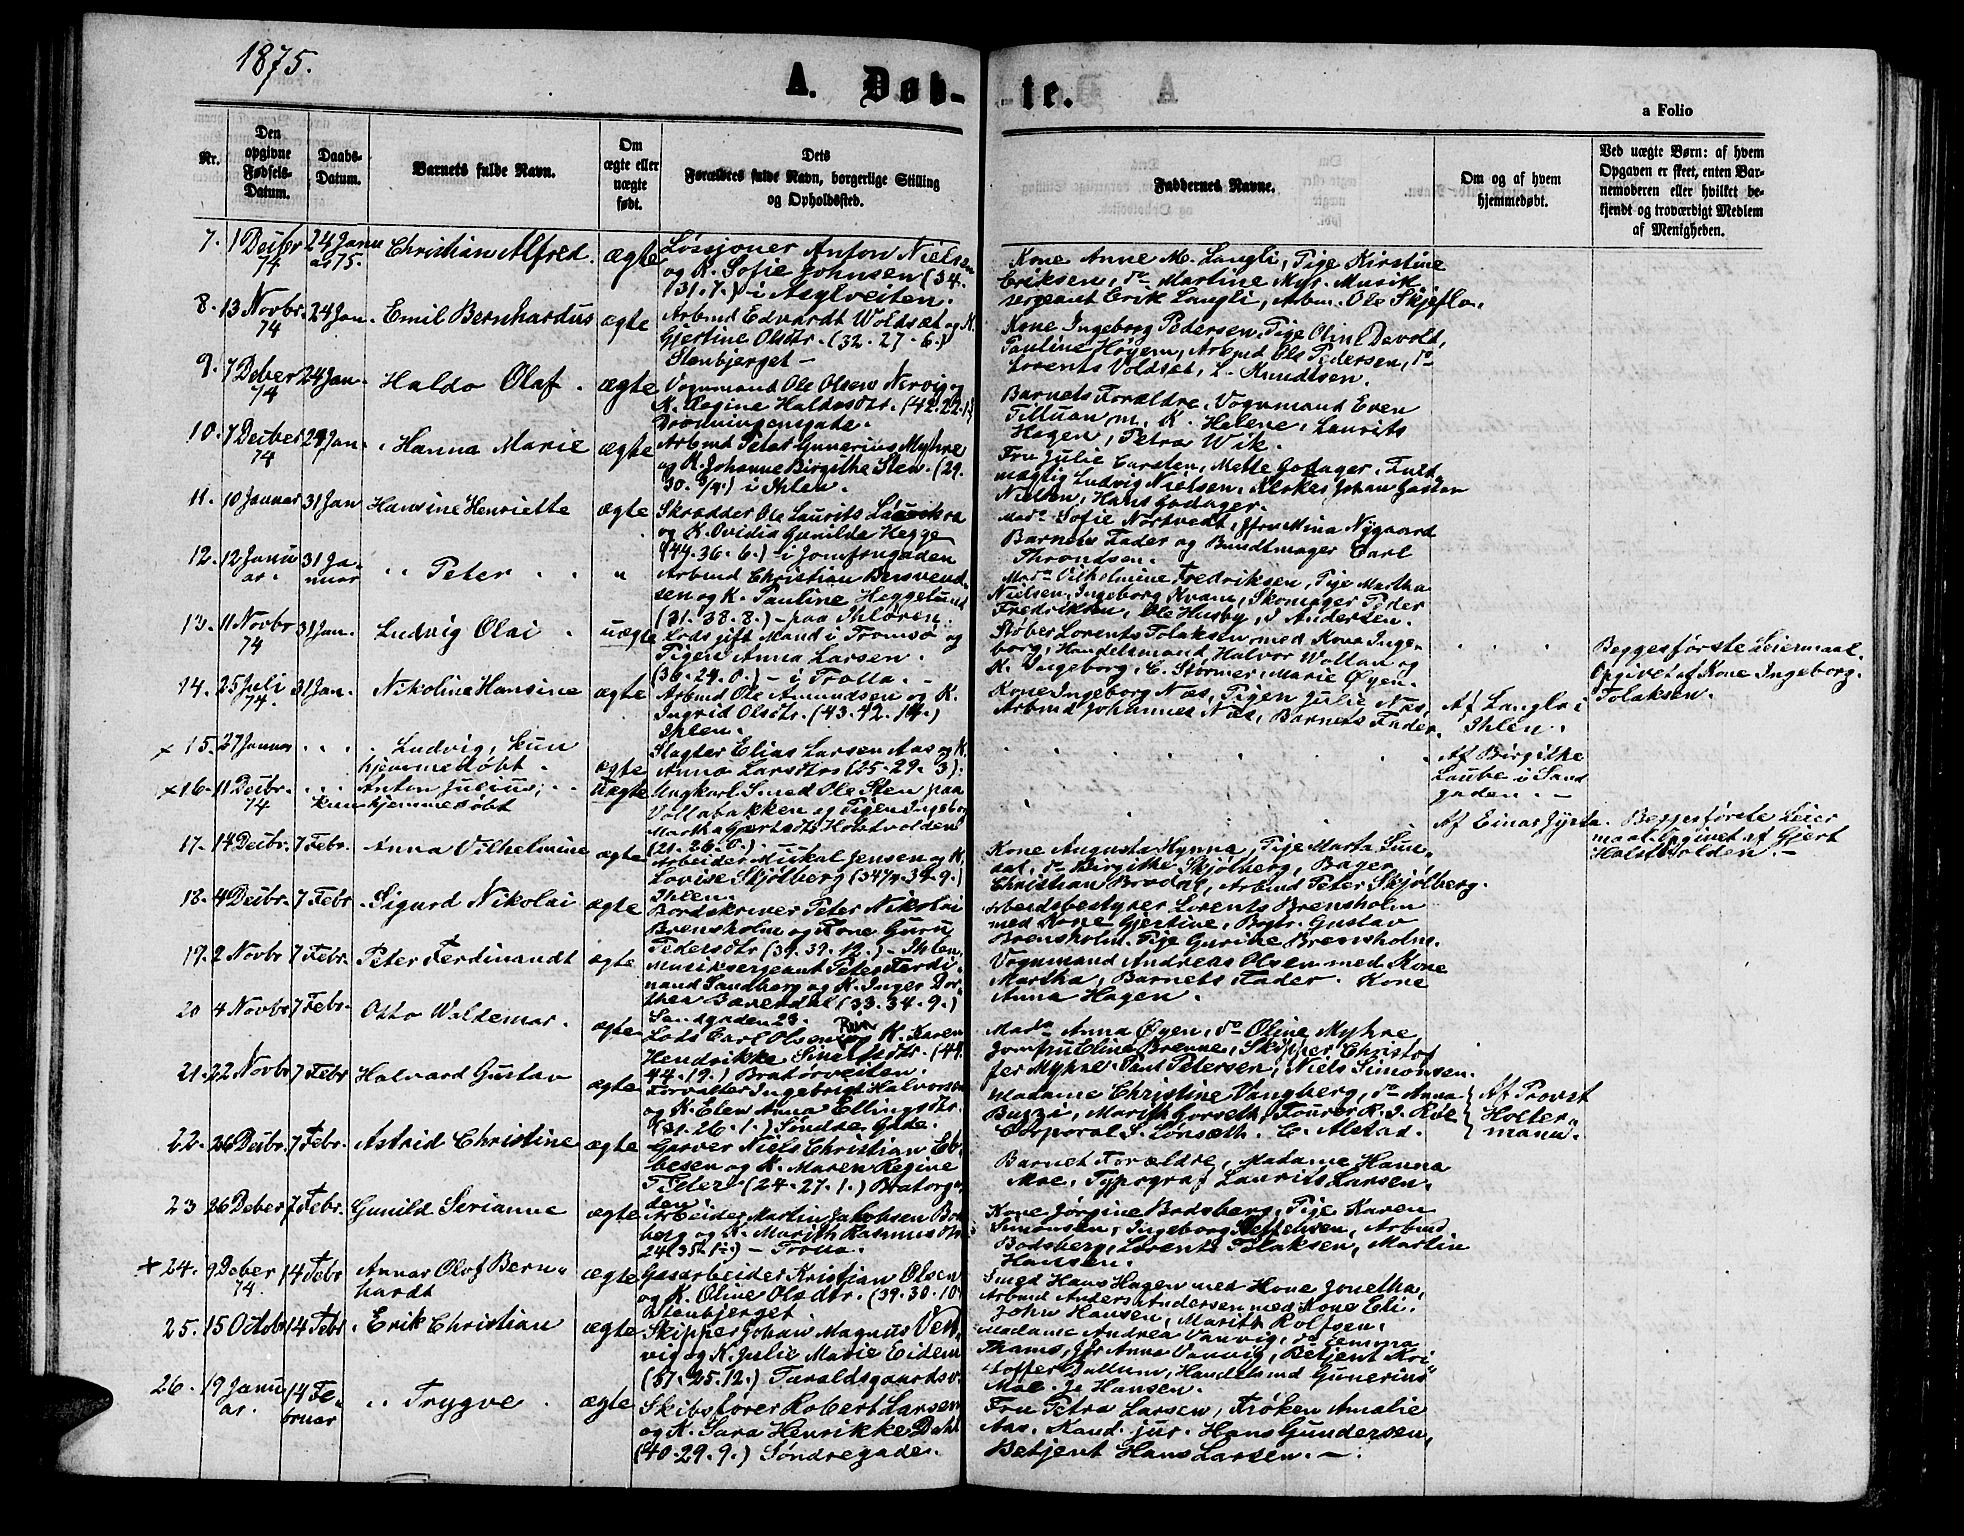 1875.
A. Døb-
te.
a Folio
Nr.
Den
opgivne
Fødsels-
Datum.
Daabs-
Datum.
Barnets fulde Navn.
Om
ægte eller
uægte
født.
Dets
Forældres fulde Navn, borgerlige Stilling
og Opholdssted.
Faddernes Navne.
Om og af hvem
hjemmedøbt.
Ved uægte Børn: af hvem
Opgaven er skeet, enten Bar-
nemoderen eller hvilket be-
kjendt og troværdigt Medlem
af Menigheden.
7. 1 Decbr 74 24 Janu ar 75. Christian Alfred. ægte
Løssjoner Anton Nielsen
og K. Sofie Johnsen (34.
(31. 7.) i Asylveiten.
Kone Anne M. Langli, Pige Kirstine
Eriksen, do Martine Myr. Musik
sergeant Erik Langli, Arbm. Ole Skjeflo.
8. 13 Novbr. 74 24 Jan. Emil Bernhardus ægte
Arbmd Edvardt Woldsæt og K.
Gjertine Olsdtr. (32. 27. 6.)
Stenbjerget -
Kone Ingeborg Pedersen, Pige Oline Devold,
Pauline Høyem, Arbmd Ole Pedersen, do
Lorents Voldsæt, L. Knudtsen.
9. 7 Deber 74 24 Jan. Haldo Olaf. ægte
Vognmand Ole Olsen Nervig og
K. Regine Haldosdtr. (42. 22. 1.)
Dronningensgade.
Barnets Forældre, Vognmand Even
Tilluan m. K. Helene, Laurits
Hagen, Petra Wik.
10. 7 Decber 74 24 Jan. Hanna Marie ægte
Arbmd Peter Gunerius Myhre
og K. Johanne Birgithe Sten. (29.
30. 3/4.) i Ihlen.
Fru Julie Carsten, Mette Godager, Fuld
mægtig Ludvig Nielsen, Klokker Johan Gustav
Nielsen, Hans Godager.
11. 10 Januar 31 Jan Hansine Henriette ægte
Skrædder Ole Laurits
og K. Ovidia Gunilde Hegge
(44. 36. 6.) - i Jomfrugaden
Mad. Sofie Nortvedt, Jfru Mina Nygaard
Barnets Fader og Bundtmager Carl
Throndsen.
12. 12 Janu ar. 31 Ja- nuar Peter "
Arbmd Christian Bersvend-
sen og K. Pauline Heggelund
(31. 38. 8.) - paa Ihløren.
Mad. Vilhelmine Fredriksen, Pige Martha
Nielsen, Ingeborg Kvam, Skomager Peder
Fredriksen, Ole Husby, J Andersen.
13. 11 Novbr 74 31 Jan. Ludvig Olai uægte
Lods gift Mand i Tromsø og
Pigen Anna Larsen.
(36. 24. 0.) - i Trolla. -
Støber Lorents Tolaksen med Kone Inge-
borg, Handelsmand Halvor Wollan og
K. Ingeborg, C. Størmer, Marie Øyen.
Begges første Leiermaal.
Opgivet af Kone Ingeborg
Tolaksen.
14. 25 Juli 74. 31 Jan. Nikoline Hansine ægte
Arbmd Ole Amundsen og K.
Ingrid Olsdtr. (43. 42. 14.)
Ihlen.
Kone Ingeborg Næs, Pigen Julie Næs,
Arbmd Johannes Næs, Barnets Fader.
Af Langlo i
Ihlen.
× 15. 27 Januar Ludvig, kun
hjemmedøbt. ægte
Slagter Elias Larsen Aas og K.
Anna Larsdtr (25. 29. 3).
Af Birgithe
Laube i Sand
gaden. -
× 16. 11 Decbr. 74 Anton Julius,
kun hjemmedøbt uægte
Ungkarl Smed Ole Sten paa
Vollabakken og Pigen Ingeborg
Martha Gjertsdtr Holstvolden
(21. 26. 0.) -
Af Einar Jyssta.
Begges første Leier
maal. Opgivet af Gjert
Holstvolden. -
17. 14 Decbr. 7 Febr. Anna Vilhelmine ægte
Arbeider Mikal Jensen og K.
Lovise Skjølberg (34 34. 9.)
Ihlen.
Kone Augusta Hynne, Pige Marta Sun-
aal, do Birgithe Skjølberg, Bager
Christian Brodal, Arbmd Peter Skjølberg.
18. 4 Decbr. 7 Febr Sigurd Nikolai ægte
Bordskriver Peter Nikolai
Brensholm og Kone Guru
Pedersdtr (39. 39. 12.) - Ihlen
Arbeidsbestyrer Lorents Brensholm
med Kone Gjertine, Bogtr. Gustav
Brensholm. Pige Gurine Brensholm.
19. 2 Novbr 7 Febr. Peter Ferdinandt ægte
Musiksergeant Peter Ferdi-
nand Sandberg og K. Inger Dor-
thea Barendal (33. 34. 9.)
Sandgaden 28.
Vognmand Andreas Olsen med Kone
Martha, Barnets Fader. Kone
Anna Hagen.
20 4 Novbr 7 Febr. Otto Waldemar. ægte
Lods Carl Olsen og K. Karen
Hendrikke Sivertsdtr. (44.
44. 19.) Bratørveiten.
Mad. Anna Øyen, do Oline Myhre
Jomfru Eline Brenne, Skipper Christof
fer Myhre. Paul Petersen, Niels Simonsen.
21. 22 Novbr 7 Febr Halvard Gustav ægte
Forvalter Ingebrigt Halvorsen
og K. Elen Anna Ellingsdtr.
(31. 26. 1.) Søndre Gade.
Madame Christine Vangberg, do Anna
Buzzi, Marith Gorseth. Fourer R. J. Roe
Corporal S. Lønsæth. C. Alstad.
Af Provst
Holter-
mann.
22. 26 Decbr. 7 Febr. Astrid Christine ægte
Garver Niels Christian Eb-
besen og K. Maren Regine
(24. 27. 1.) Bratørga-
den
Barnet Forældre, Madame Hanna
Moe, Typograf Laurits Larsen.
23 26 Deber 7 Febr. Gunild Serianne ægte
Arbeider Martin Jakobsen Bods
berg og K. Marith Rasmusdtr
24. 35. 1.) - Trolla.
Kone Jørgine Bodsberg, Pige Karen
Simonsen, Ingeborg Steffensen, Arbmd
Bodsberg, Lorents Tolaksen, Martin
Hansen.
× 24. 9 Deber 74. 14 Febr Annar Olof Bern-
hardt ægte
Gasarbeider Kristian Olsen
og K. Oline Olsdtr. (39. 30. 10.
Stenbjerget
Smed Hans Hagen med Kone Jonetha,
Arbmd Anders Andersen med Kone Eli.
John Hansen, Marith Rolfsen.
25. 15 Octobr 14 Febr Erik Christian ægte
Skipper Johan Magnus Ven-
vig og K. Julie Marie Eidem
(37. 25. 12.) Taraldsgaardsv.
Madame Andrea Vanvig, do Emma
Thams, Jfr Anna Vanvig, Betjent Kri
stoffer Dullum, Handelsmd Gunerius
Moe. Jo Hansen.
26. 19 Janu ar. 14 Fe- bruar Trygve. ægte
Skibsfører Robert Larsen
og K. Sara Henrikke Dahl
(40. 29. 9.) Søndregade.
Fru Petra Larsen, Frøken Amalie
Aas, Kand. jur. Hans Gundersen,
Betjent Hans Larsen. -